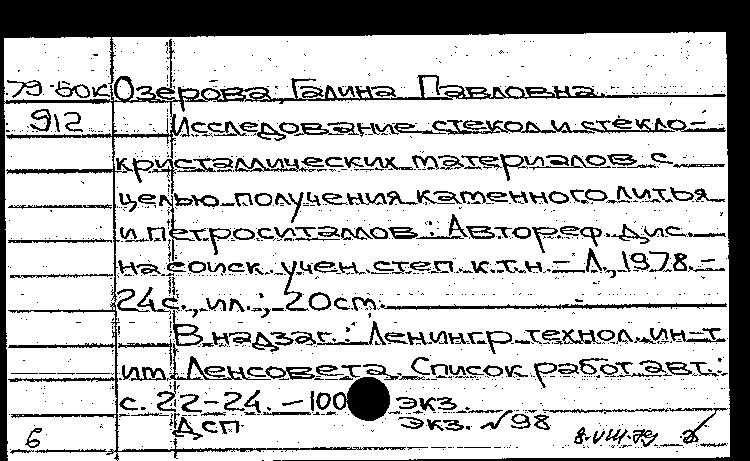 79-60к Озерова, Галина Павловна.
912 Исследование стекол и стекло-
кристаллических материалов с
целью получения каменного литья
и петроситаллов : Автореф. дис.
на соиск. учен. степ. к.т.н. – Л., 1978. –
24 с., ил.; 20 см.
В надзаг.: Ленингр. технол. ин-т
им. Ленсовета. Список работ авт.:
с. 22-24. – 100 экз.
Дсп экз. №98
6 8.VIII.79